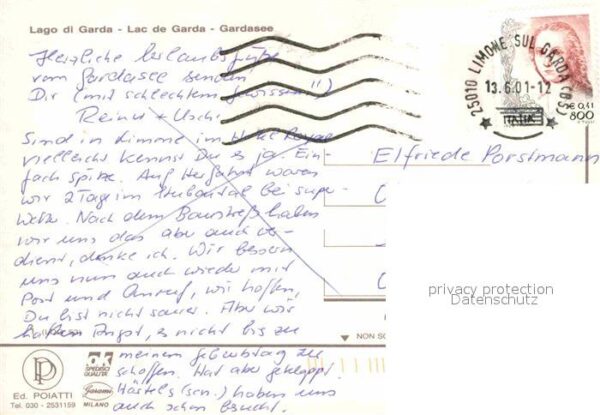 Lago di Garda - Lac de Garda - Gardasee
Herzliche Urlaubsgrüße
vom Gardasee senden
Dir (mit schlechtem Gewissen!)
Reiner + Uschi
Sind in Limone im Hotel Royal
vielleicht kennst Du es ja. Ein-
fach spitze. Auf Herfahrt waren
wir 2 Tage im Stubaital bei super
Wetter. Nach dem Baustreß haben
wir uns das aber auch ver-
dient, denke ich. Wir bessern
uns nun auch wieder mit
Post und Anruf, wir hoffen,
Du bist nicht sauer. Aber wir
hatten Angst, es nicht bis zu
meinem Geburtstag zu
schaffen. Hat aber geklappt.
Härtels (sen.) haben uns
auch schon besucht.
25010 LIMONE SUL GARDA (BS)
13.6.01-12
ITALIA
€ 0,41
800
Elfriede Porstmann
privacy protection
Datenschutz
NON SC
Ed. POIATTI
Tel. 030 - 2531159
OK
SPEDISCI
QUALITA'
Garami
MILANO